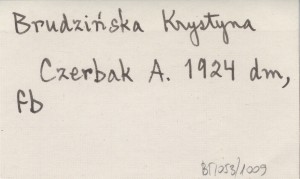 Brudzińska Krystyna
Czerbak A. 1924 dm,
fb
BF/053/1009